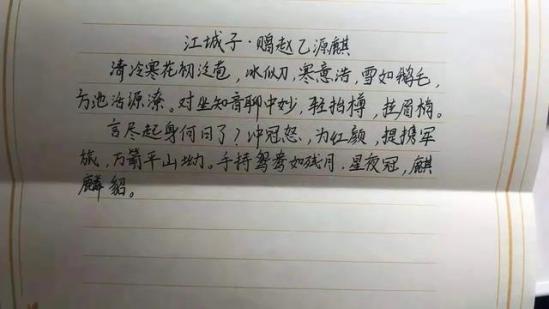 江城子·赐赵乙源麒
清冷寒花初泛苞,冰似刀,寒意浩,雪如鹅毛,
方池浴源潦。对坐知音聊中妙,轻抬樽,挂眉梢。
言尽起身何日了?冲冠怒,为红颜,提携军
旅,万箭平山坳。手持鸳鸯如残月,星夜冠,麒
麟貂。